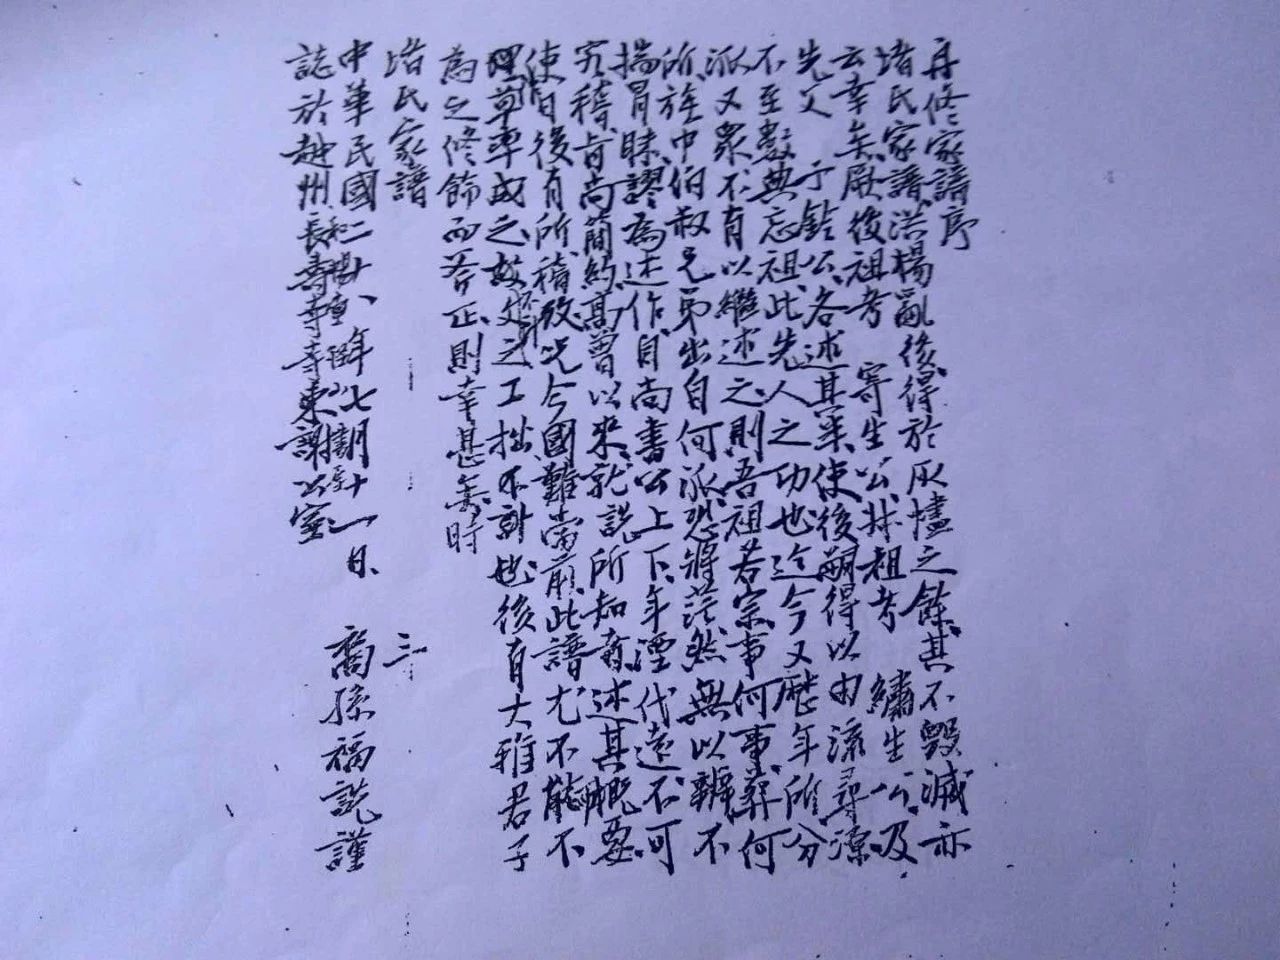 再修家譜序
堵氏家譜、洪楊亂後、得於灰燼之餘、其不毀滅亦
云幸矣、厥後祖考 寄生公、叔祖考 繡生公、及
先父 子銓公、各述其畧、使後嗣得以由流尋源、
不至數典忘祖、此先人之功也、迄今又歷年所、分
派又衆、不有以繼述之、則吾祖若宗、事何事、葬何
所、族中伯叔兄弟、出自何派、恐將茫然、無以辨、不
揣冒昧、謬為述作、自尚書公上下、年湮代遠、不可
究稽、旨尚簡約、高曾以來、就說所知者、述其概要、
使日後有所稽攷、况今國難當前、此譜尤不能不
草率成之、故文之工拙、不計也、後有大雅君子
為之修飾而斧正、則幸甚矣、時
堵氏家譜 三
中華民國二十年七月十一日、 裔孫福詵謹
誌於越州長壽寺東謝公室